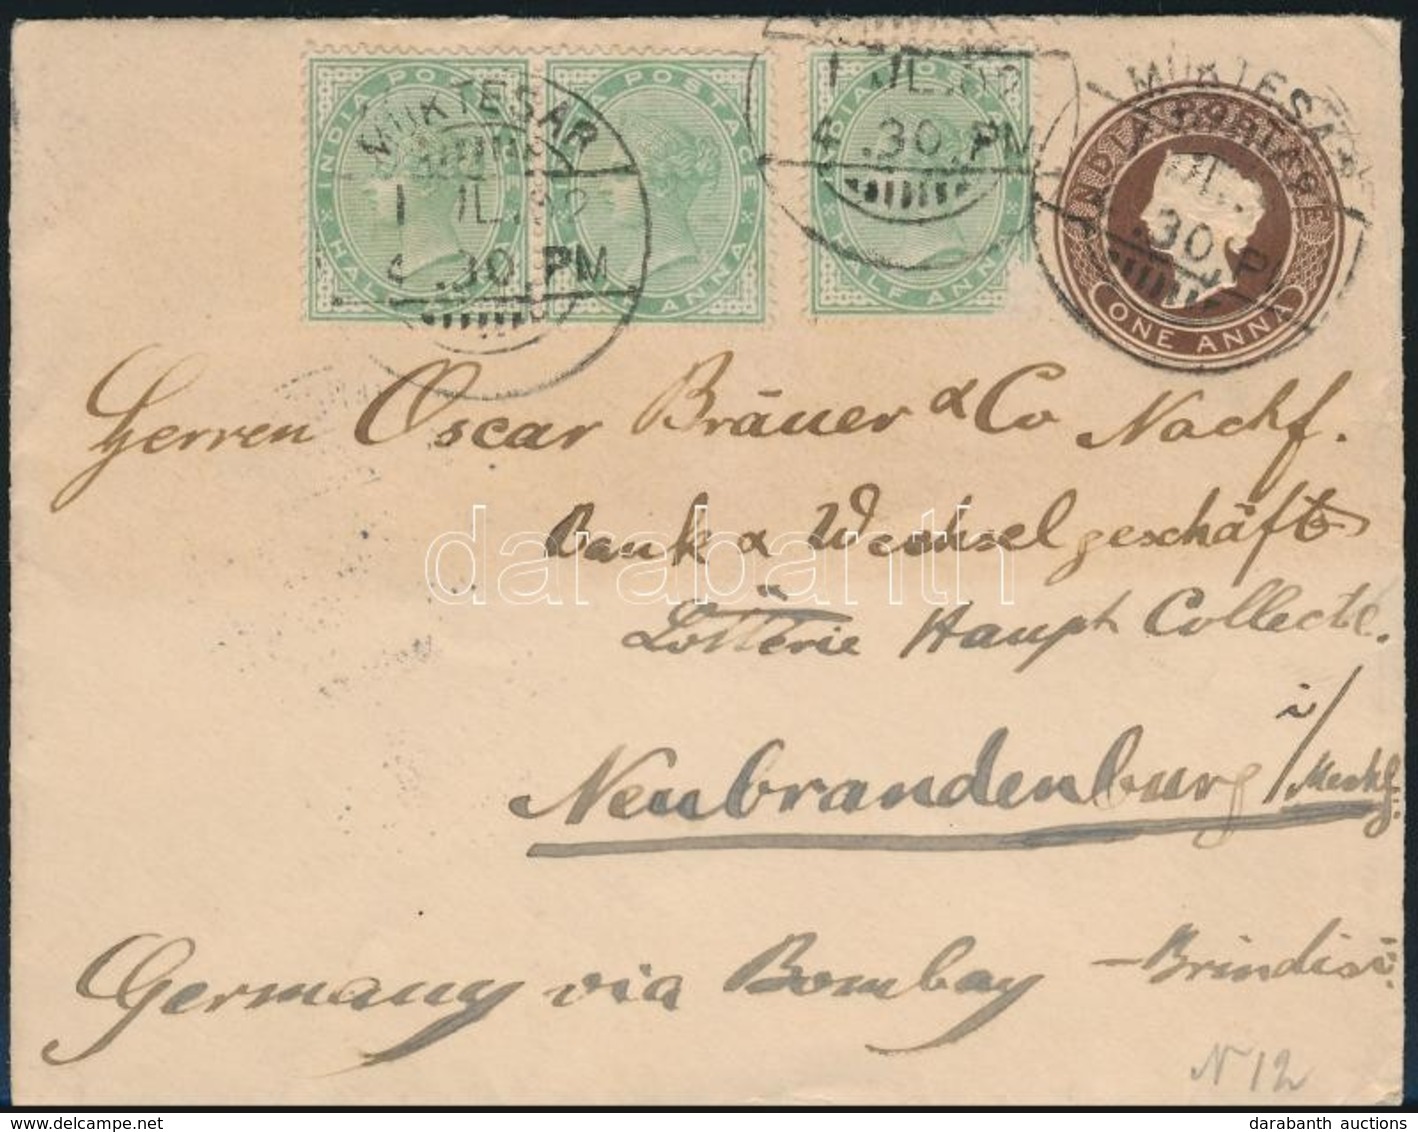 INDIA POSTAGE
HALF ANNA
MUKTESAR
1 JL.02
4.30 PM
INDIA POSTAGE
HALF ANNA
INDIA POSTAGE
HALF ANNA
1 JL.02
4.30 PM
MUKTESAR
INDIA POSTAGE
ONE ANNA
Herren Oscar Bräuer & Co Nachf.
Bank & Wechselgeschäft
Lotterie Haupt Collecte.
Neubrandenburg i/Meckl.
Germany via Bombay – Brindisi.
N 12
darabanth
darabanth auctions